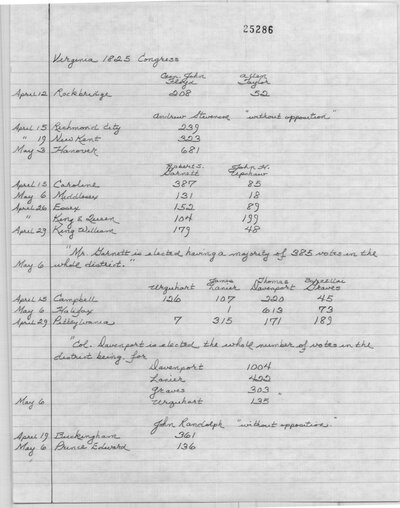 25286
Virginia 1825 Congress
Gen. John Floyd Allen Taylor
April 12 Rockbridge 208 52
Andrew Stevenson "without opposition"
April 15 Richmond City 239
" 19 New Kent 323
May 3 Hanover 681
Robert S. Garnett John H. Upshaw
April 15 Caroline 387 85
May 6 Middlesex 131 18
April 26 Essex 152 89
" King & Queen 104 199
April 29 King William 179 48
"Mr. Garnett is elected having a majority of 385 votes in the
May 6 whole district."
Urquhart James Lanier Thomas Davenport Graves
April 25 Campbell 126 107 220 45
May 6 Halifax 1 613 73
April 29 Pittsylvania 7 315 171 189
"Col. Davenport is elected, the whole number of votes in the
district being, for
Davenport 1004
Lanier 422
Graves 303
May 6 Urquhart 135"
John Randolph "without opposition."
April 19 Buckingham 361
May 6 Prince Edward 136
"